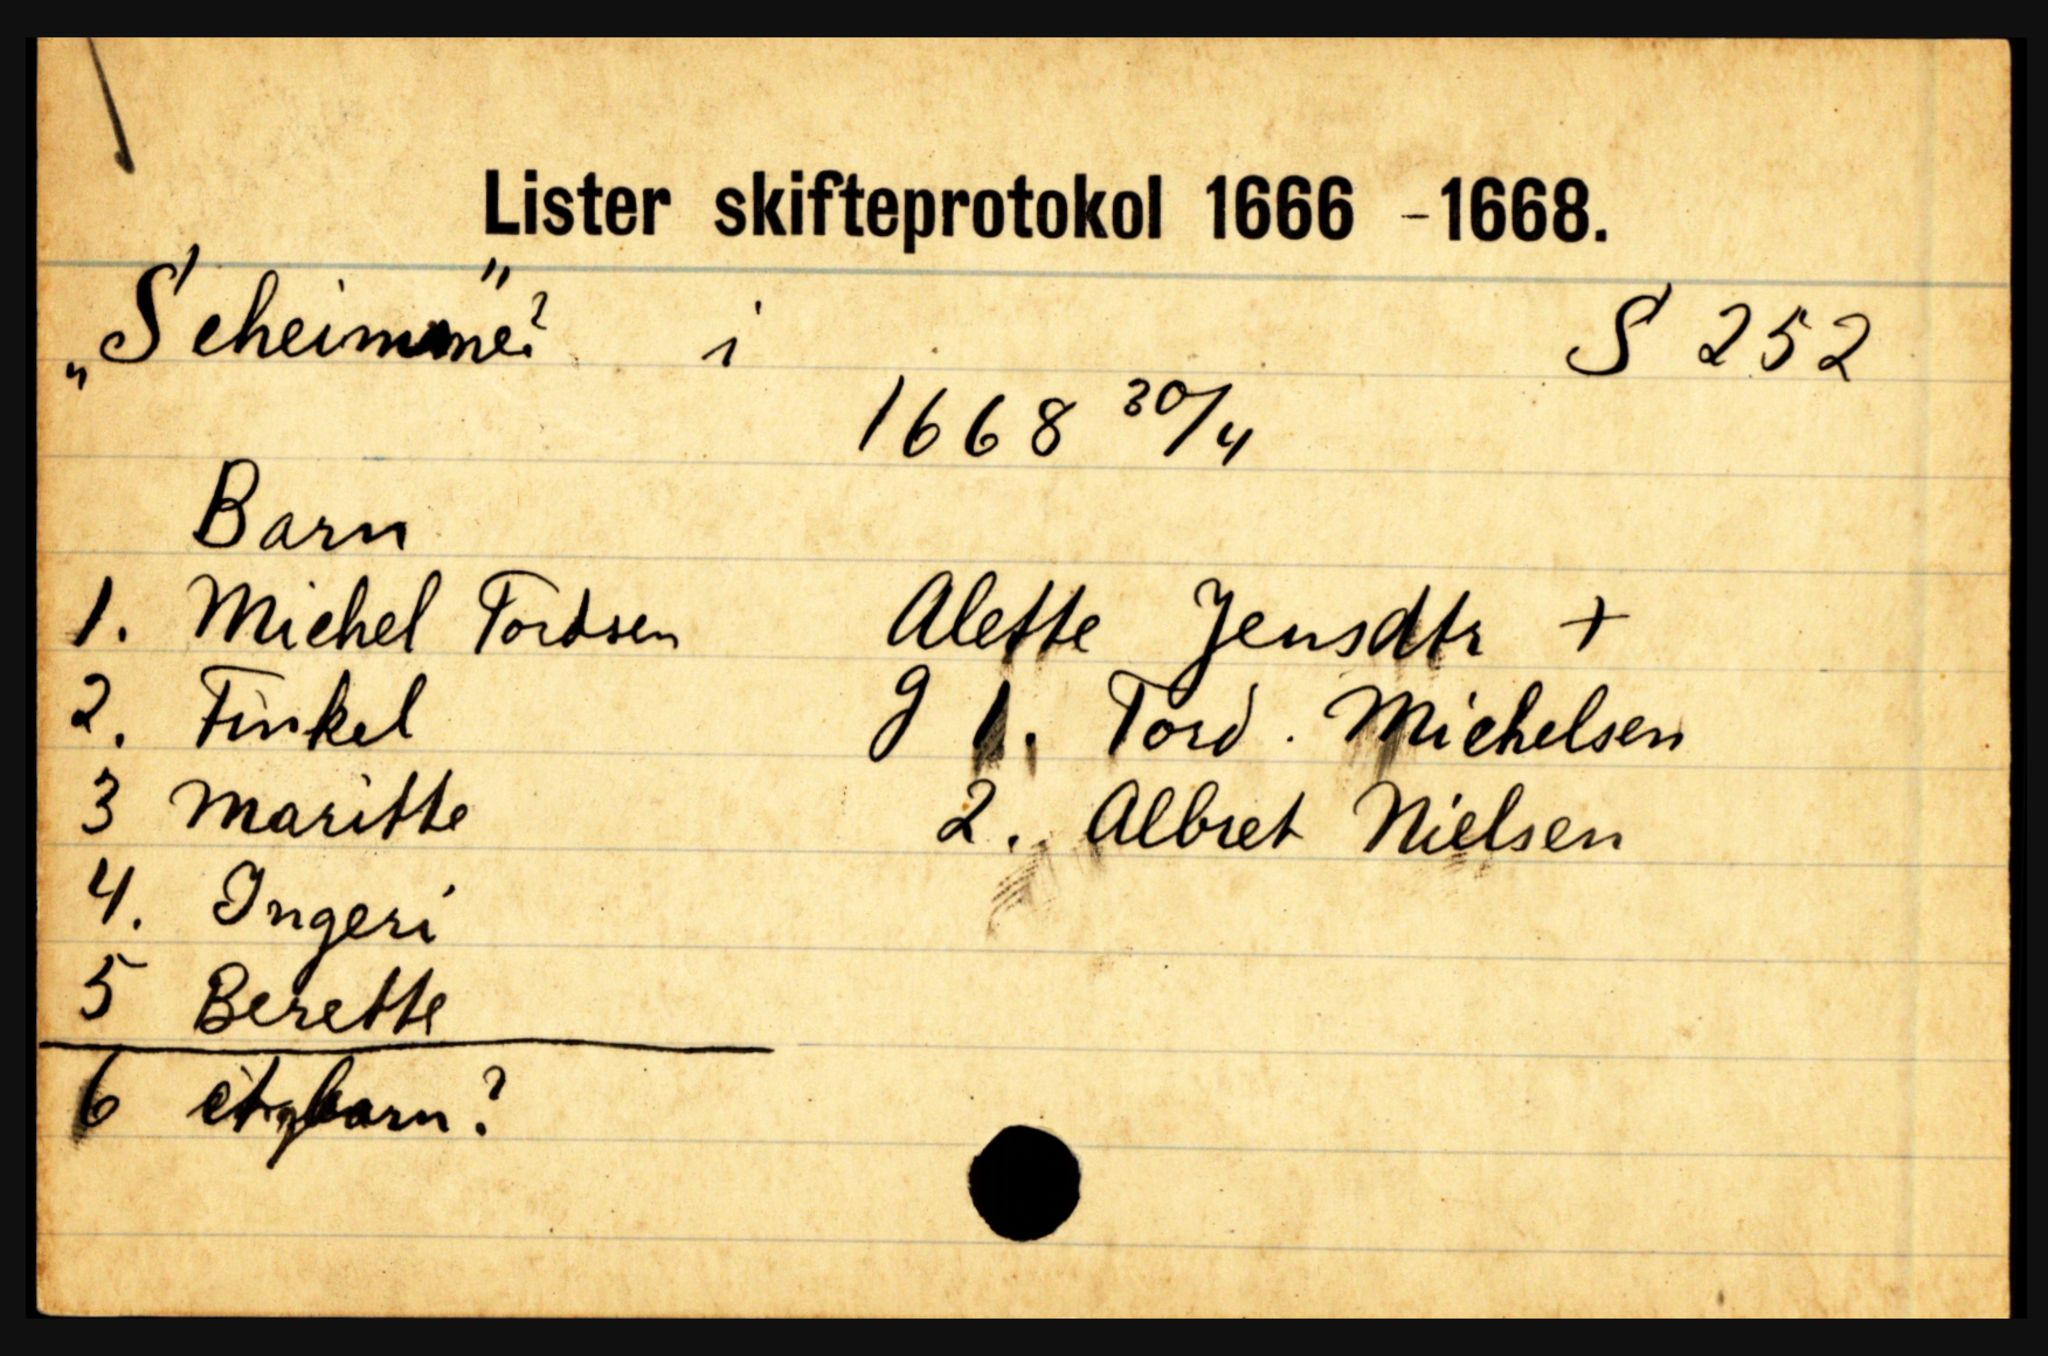 Lister skifteprotokol 1666 - 1668.
„Seheimme?" i S 252
1668 30/4
Barn
1. Michel Tordsen Alette Jensdtr +
2. Finkel g 1. Tord. Michelsen
3 Maritte 2. Albret Nielsen
4. Ingeri
5 Berette
6 barn?